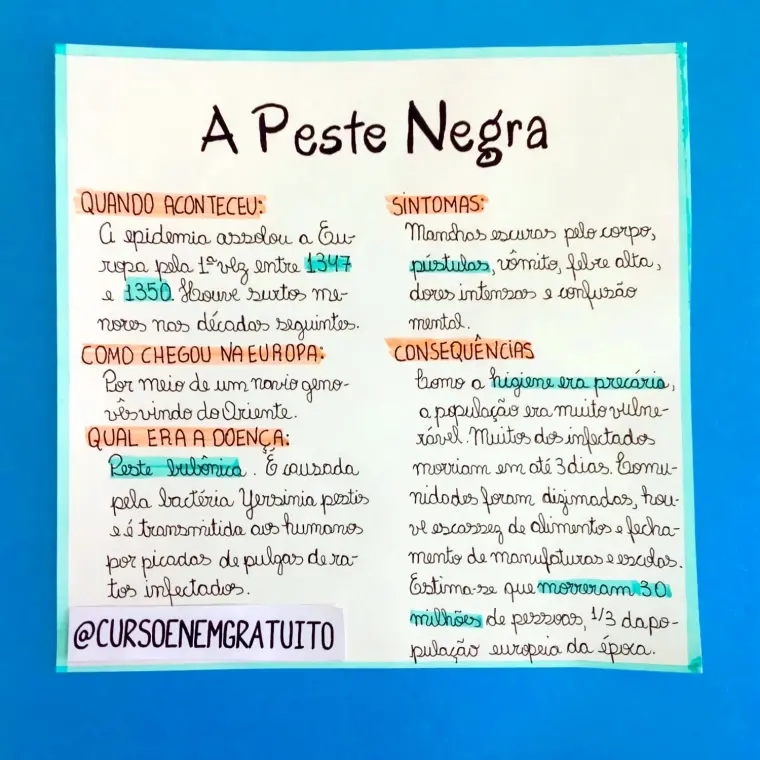 A Peste Negra
QUANDO ACONTECEU:
A epidemia assolou a Eu-
ropa pela 1ª vez entre 1347
e 1350. Houve surtos me-
nores nas décadas seguintes.
COMO CHEGOU NA EUROPA:
Por meio de um navio geno-
vês vindo do Oriente.
QUAL ERA A DOENÇA:
Peste bubônica. É causada
pela bactéria Yersinia pestis
e é transmitida aos humanos
por picadas de pulgas de ra-
tos infectados.
@CURSOENEMGRATUITO
SINTOMAS:
Manchas escuras pelo corpo,
pústulas, vômito, febre alta,
dores intensas e confusão
mental.
CONSEQUÊNCIAS
Como a higiene era precária,
a população era muito vulne-
rável. Muitos dos infectados
morriam em até 3 dias. Comu-
nidades foram dizimadas, hou-
ve escassez de alimentos e fecha-
mento de manufaturas e escolas.
Estima-se que morreram 30
milhões de pessoas, 1/3 da po-
pulação europeia da época.